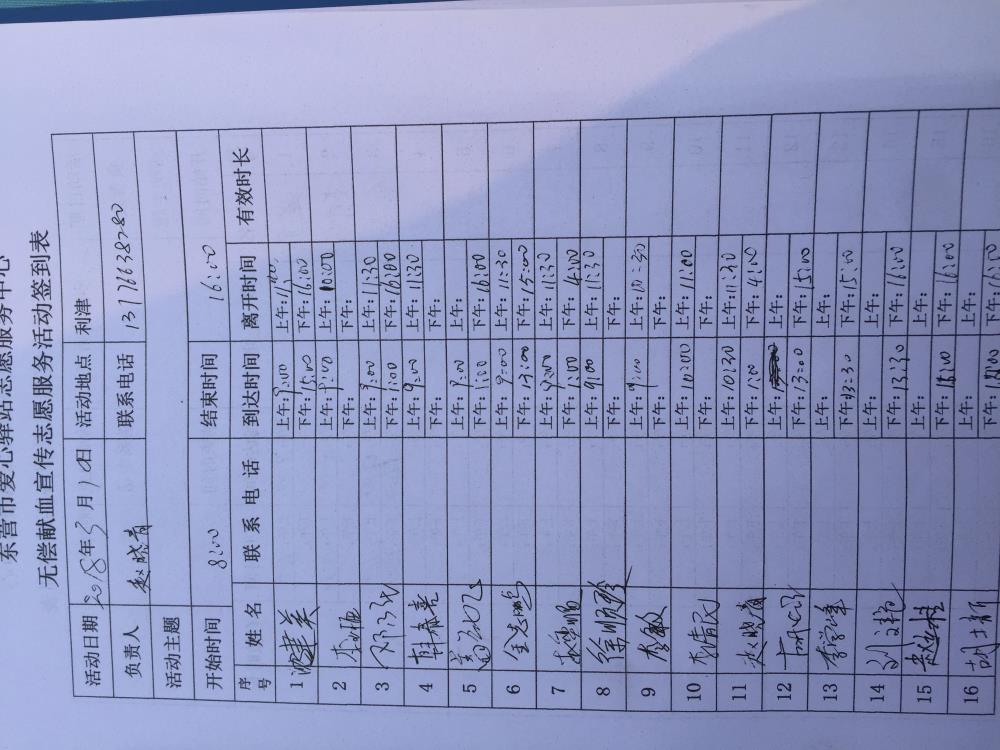 东营市爱心驿站志愿服务中心
无偿献血宣传志愿服务活动签到表
活动日期 2018年3月10日 活动地点 利津
负责人 赵晓青 联系电话 13176638780
活动主题
开始时间 8:00 结束时间 16:00
序号 姓名 联系电话 到达时间 离开时间 有效时长
1 建美 上午: 9:00 上午: 11:00
下午: 15:00 下午: 16:00
2 李 上午: 9:00 上午: 10:00
下午: 下午:
3 邓 上午: 9:00 上午: 11:30
下午: 1:00 下午: 16:00
4 韩春亮 上午: 9:00 上午: 11:30
下午: 下午:
5 上午: 9:00 上午:
下午: 1:00 下午: 16:00
6 金志 上午: 9:00 上午: 11:30
下午: 13:00 下午: 15:00
7 上午: 9:00 上午: 11:30
下午: 1:00 下午: 4:00
8 徐顺 上午: 9:00 上午: 11:30
下午: 下午:
9 李敏 上午: 9:00 上午: 10:30
下午: 下午:
10 李清 上午: 10:00 上午: 11:00
下午: 下午:
11 赵晓青 上午: 10:30 上午: 11:30
下午: 1:00 下午: 4:00
12 上午: 上午:
下午: 13:00 下午: 15:00
13 李学峰 上午: 上午:
下午: 13:30 下午: 15:00
14 刘文艳 上午: 上午:
下午: 13:30 下午: 16:00
15 赵 上午: 上午:
下午: 下午: 16:00
16 胡 上午: 上午:
下午: 下午: 16:00